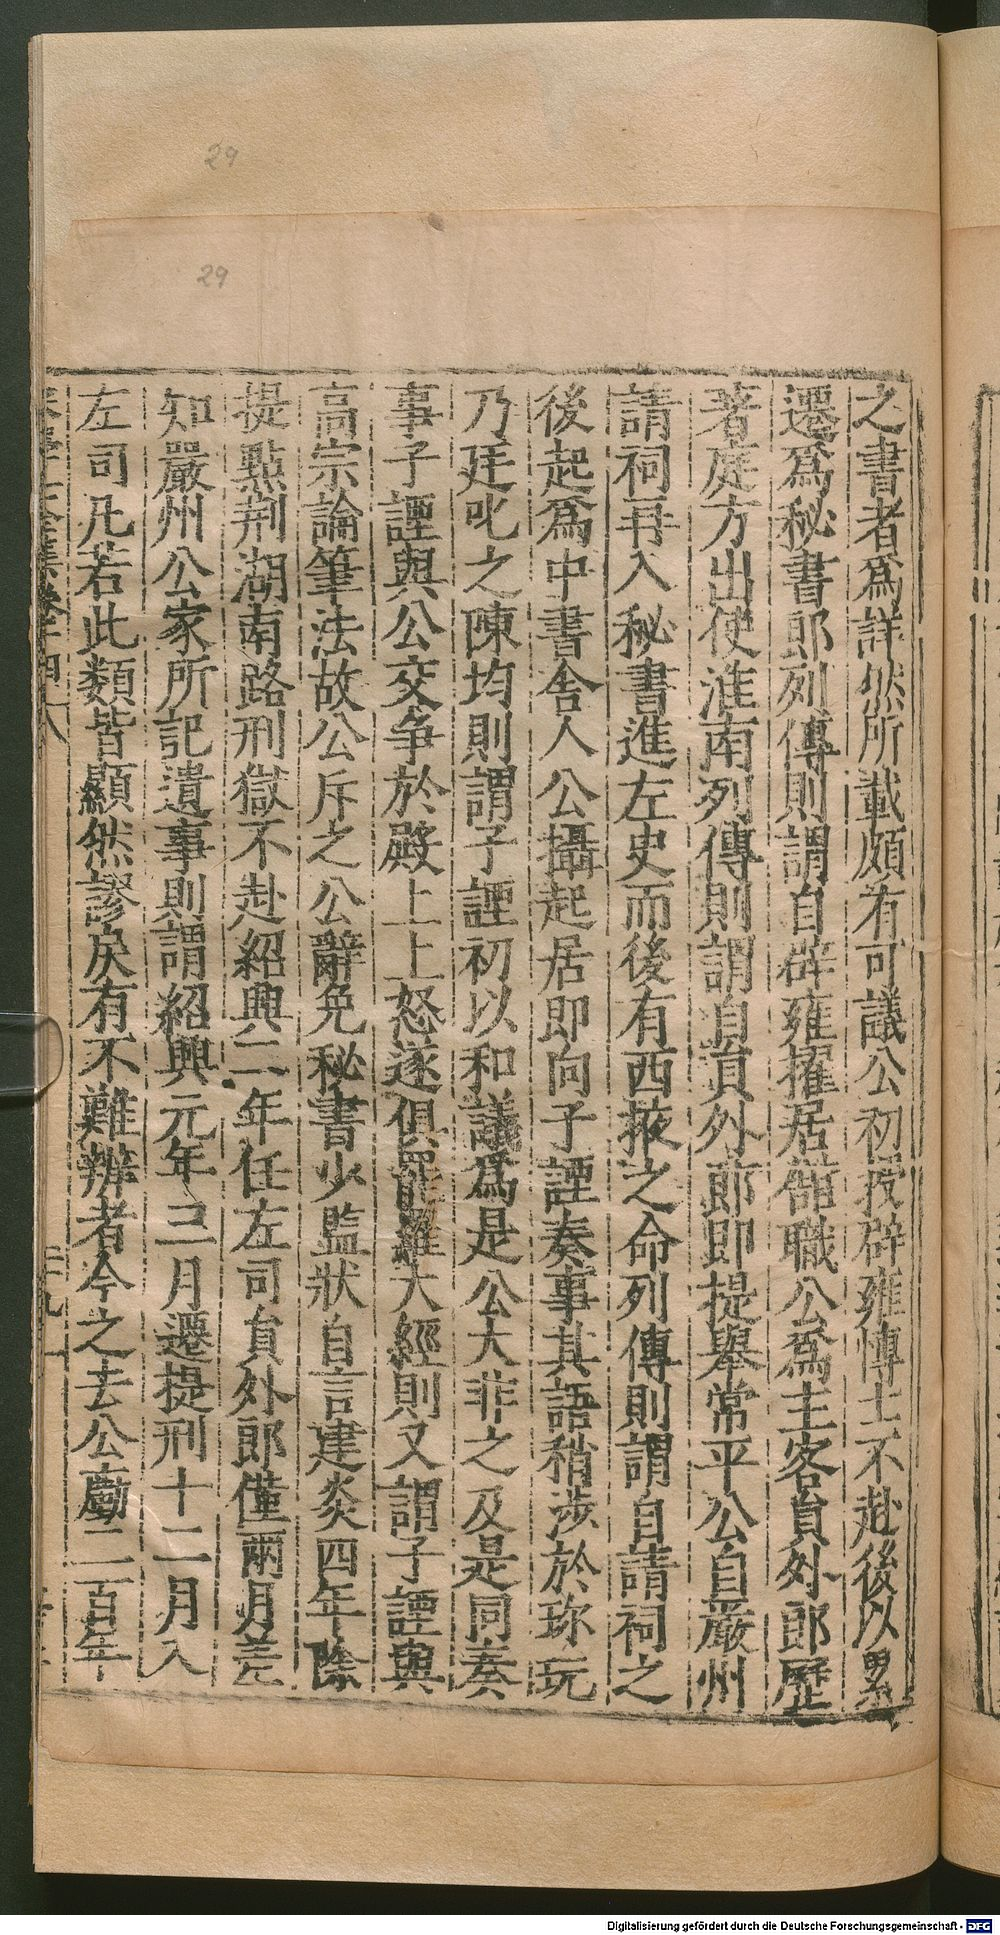 29
29
之書者爲詳然所載頗有可議公初授辟雍博士不赴後以累
遷爲秘書郎列傳則謂自辟雍擢居館職公爲主客貟外郎歷
著庭方出使淮南列傳則謂自貟外郎即提舉常平公自嚴州
請祠再入秘書進左史而後有西掖之命列傳則謂自請祠之
後起爲中書舍人公攝起居即向子諲奏事其語稍涉於珎玩
乃廷叱之陳均則謂子諲初以和議爲是公大非之及是同奏
事子諲與公交爭於殿上上怒遂俱罷羅大經則又謂子諲與
高宗論筆法故公斥之公辭免秘書少監狀自言建炎四年除
提點荆湖南路刑獄不赴紹興二年任左司貟外郎僅兩月差
知嚴州公家所記遺事則謂紹興元年三月遷提刑十二月入
左司凡若此類皆顯然謬戾有不難辨者今之去公勵二百年
Digitalisierung gefördert durch die Deutsche Forschungsgemeinschaft - DFG